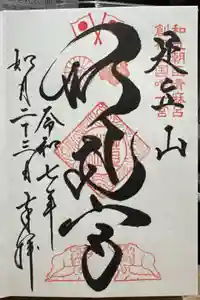 足立山
妙見宮
令和七年
如月二十三日奉拝